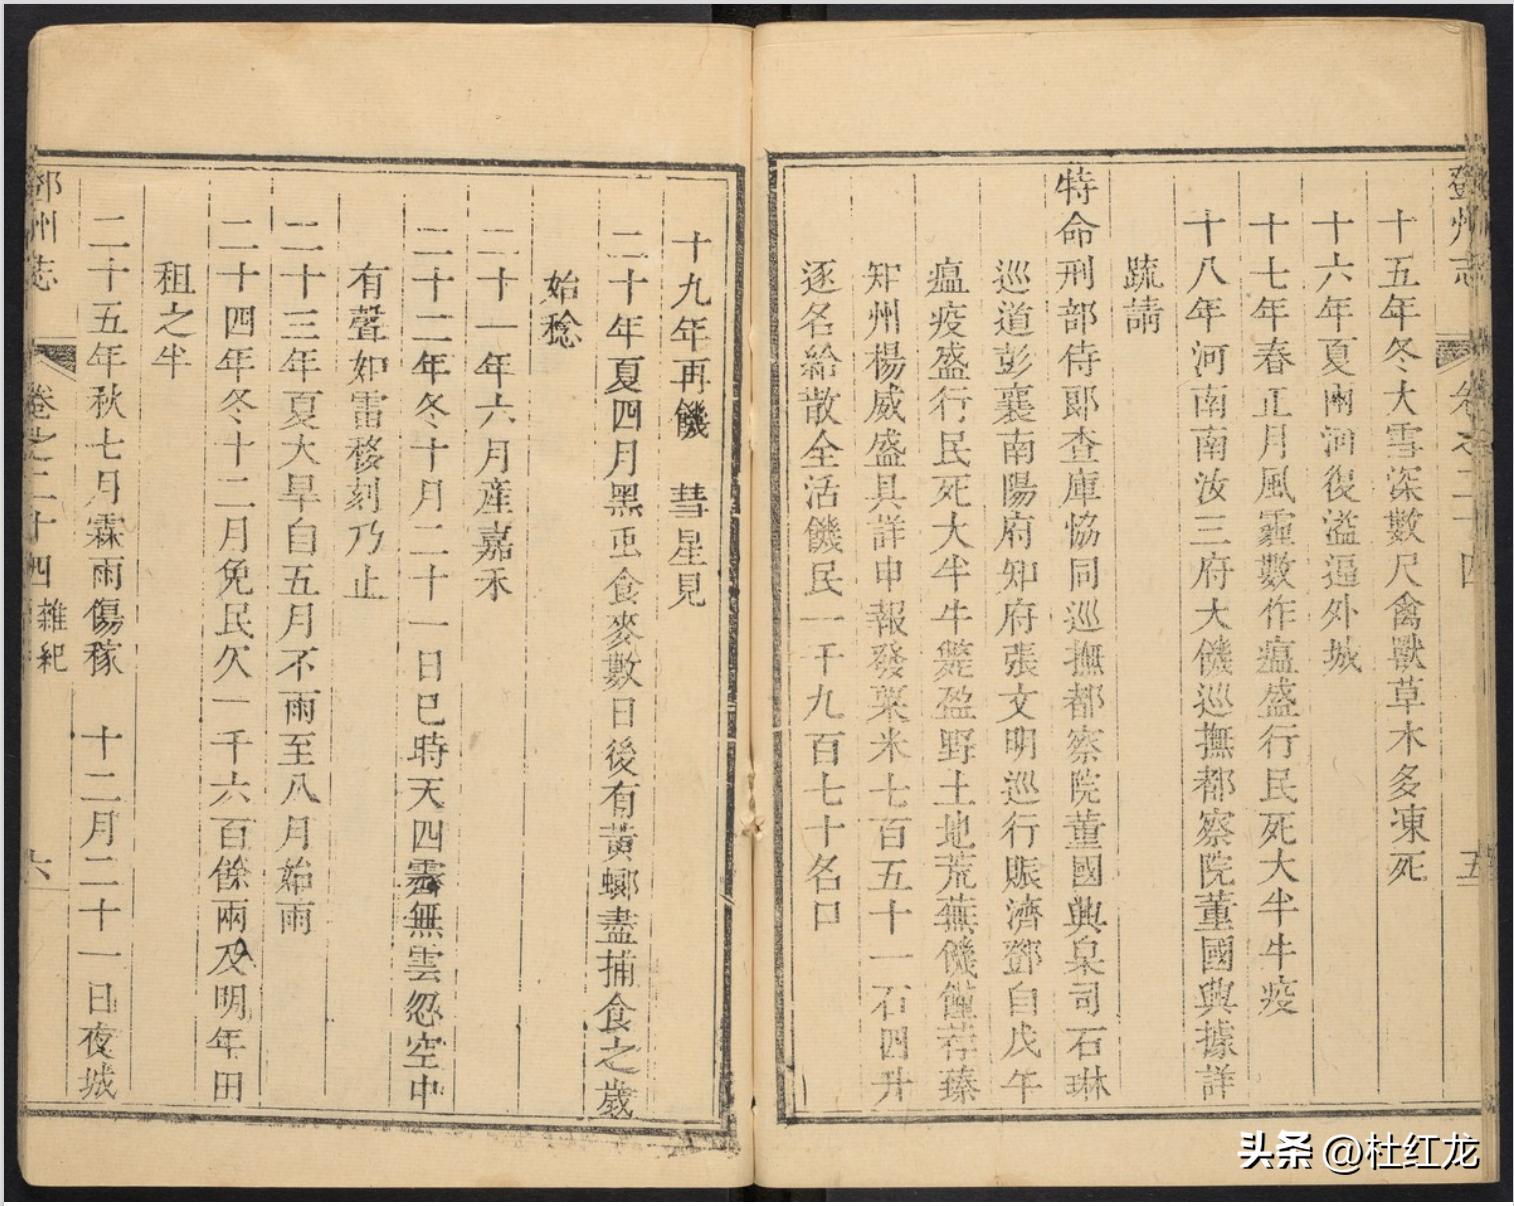 鄧州志 卷之二十四 五
十五年冬大雪深數尺禽獸草木多凍死
十六年夏兩河復溢逼外城
十七年春正月風霾數作瘟盛行民死大半牛疫
十八年河南南汝三府大饑巡撫都察院董國興據詳
疏請
特命刑部侍郞查庫恊同巡撫都察院董國興臬司石琳
巡道彭襄南陽府知府張文明巡行賑濟鄧自戊午
瘟疫盛行民死大半牛斃盈野土地荒蕪饑饉荐臻
知州楊威盛具詳申報發粟米七百五十一石四升
逐名給散全活饑民一千九百七十名口
十九年再饑 彗星見
二十年夏四月黑䖝食麥數日後有黃螂盡捕食之歲
始稔
二十一年六月產嘉禾
二十二年冬十月二十一日巳時天四霽無雲忽空中
有聲如雷移刻乃止
二十三年夏大旱自五月不雨至八月始雨
二十四年冬十二月免民欠一千六百餘兩及明年田
租之半
二十五年秋七月霖雨傷稼 十二月二十一日夜城
鄧州志 卷之二十四 雜紀 六
头条 @杜红龙